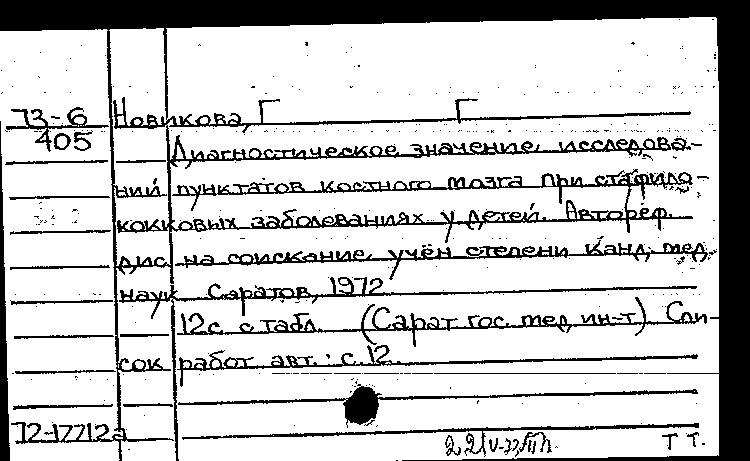 73-6 Новикова, Г Г
405
Диагностическое значение исследова-
ний пунктатов костного мозга при стафило-
кокковых заболеваниях у детей. Автореф.
дис. на соискание учён степени канд. мед.
наук Саратов, 1972
12с с табл. (Сарат гос. мед ин-т) Спи-
сок работ авт.: с.12.
72-17712а
Т Т.